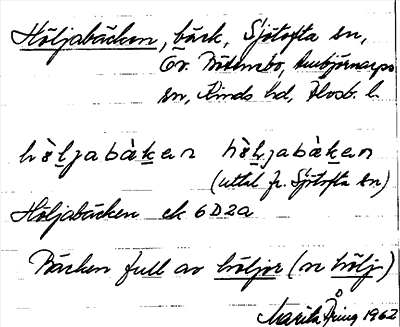 Höljabäcken, bäck, Sjötofta sn,
Ör. Ambjörnarps
sn, Kinds hd, Älvsb. l.
hö̀ljabàken hö̀ljabàken
(uttal fr. Sjötofta sn)
Höljabäcken ek 6D2a
Bäcken full av höljor (en hölj)
Marita Åring 1962